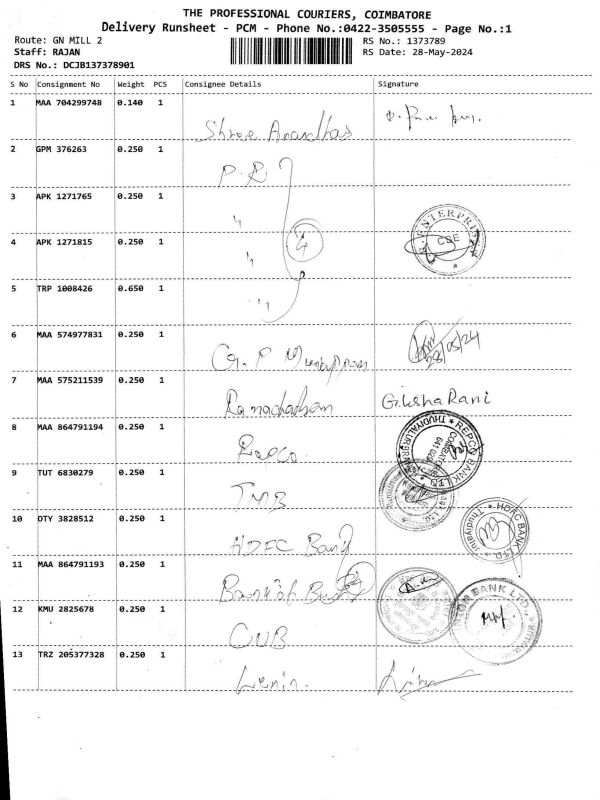 THE PROFESSIONAL COURIERS, COIMBATORE
Delivery Runsheet - PCM - Phone No.:0422-3505555 - Page No.:1
Route: GN MILL 2
RS No.: 1373789
Staff: RAJAN
RS Date: 28-May-2024
DRS No.: DCJB137378901
S No Consignment No Weight PCS Consignee Details Signature
1 MAA 704299748 0.140 1
Shree Anandhas
2 GPM 376263 0.250 1
P.R
3 APK 1271765 0.250 1
ENTERPRISE
CBE
4 APK 1271815 0.250 1
4
5 TRP 1008426 0.650 1
6 MAA 574977831 0.250 1
G. P
28/05/24
7 MAA 575211539 0.250 1
Gilsha Rani
8 MAA 864791194 0.250 1
Repco
REPCO BANK LTD
THUDIYALUR
COIMBATORE
9 TUT 6830279 0.250 1
TMB
10 DTY 3828512 0.250 1
HDFC Bank
HDFC BANK LTD.
Thudiyalur
11 MAA 864791193 0.250 1
Bank of
12 KMU 2825678 0.250 1
CUB
UNION BANK LTD.
13 TRZ 205377328 0.250 1
Lenin